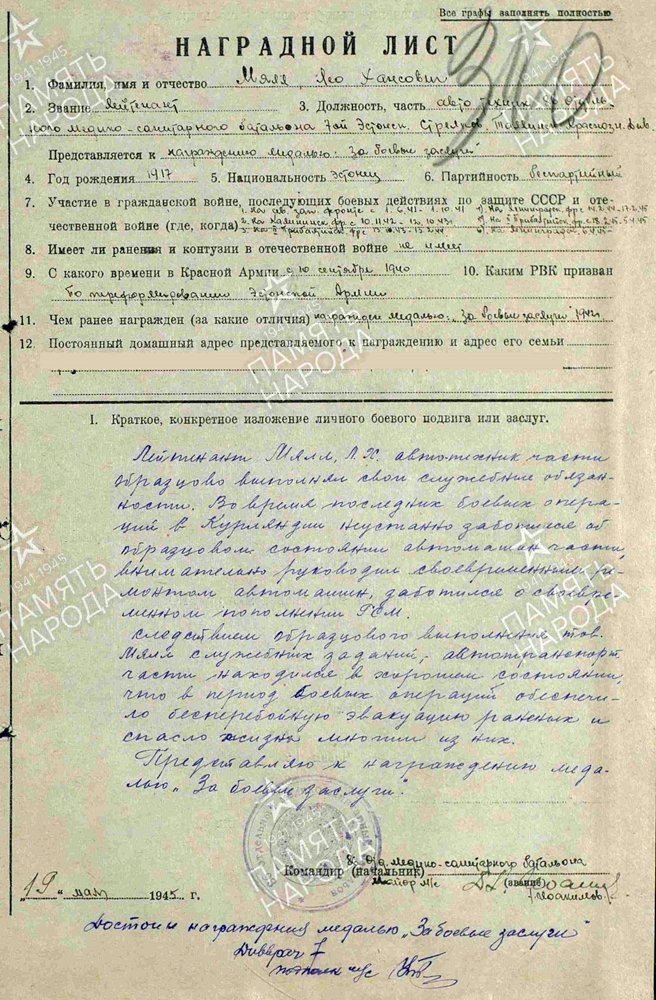 Все графы заполнять полностью
НАГРАДНОЙ ЛИСТ
1. Фамилия, имя и отчество Мялл, Лео Хансович
2. Звание Лейтенант 3. Должность, часть авто техник
медико-санитарного батальона 7ой Эстонск. Стрелков. Таллинск. Краснозн. Див.
Представляется к награждению медалью: За боевые заслуги
4. Год рождения 1917 5. Национальность Эстонец 6. Партийность беспартийный
7. Участие в гражданской войне, последующих боевых действиях по защите СССР и оте-
чественной войне (где, когда)
8. Имеет ли ранения и контузии в отечественной войне не имеет
9. С какого времени в Красной Армии с 10 сентября 1940 10. Каким РВК призван
По переформированию Эстонской Армии
11. Чем ранее награжден (за какие отличия) награжден медалью: „За боевые заслуги"
12. Постоянный домашный адрес представляемого к награждению и адрес его семьи
I. Краткое, конкретное изложение личного боевого подвига или заслуг.
Лейтенант Мялл, Л.Х. автотехник части
образцово выполнял свои служебные обязан-
ности. Во время последних боевых опера-
ций в Курляндии неустанно заботился об
образцовом состоянии автомашин части,
внимательно руководил своевременным ре-
монтом автомашин, заботился о своевре-
менном пополнении ГСМ.
следствием образцового выполнения тов.
Мялл служебных заданий, автотранспорт
части находился в хорошем состоянии,
что в период боевых операций обеспечи-
ло бесперебойную эвакуацию раненых и
спасло жизнь многим из них.
Представляю к награждению меда-
лью „За боевые заслуги".
медико-санитарного батальона
Командир (начальник)
майор м/с (звание)
„19" мая 1945 г.
Достоин награждения медалью „За боевые заслуги"
Дивврач 7
м/с
ПАМЯТЬ НАРОДА
1941-1945